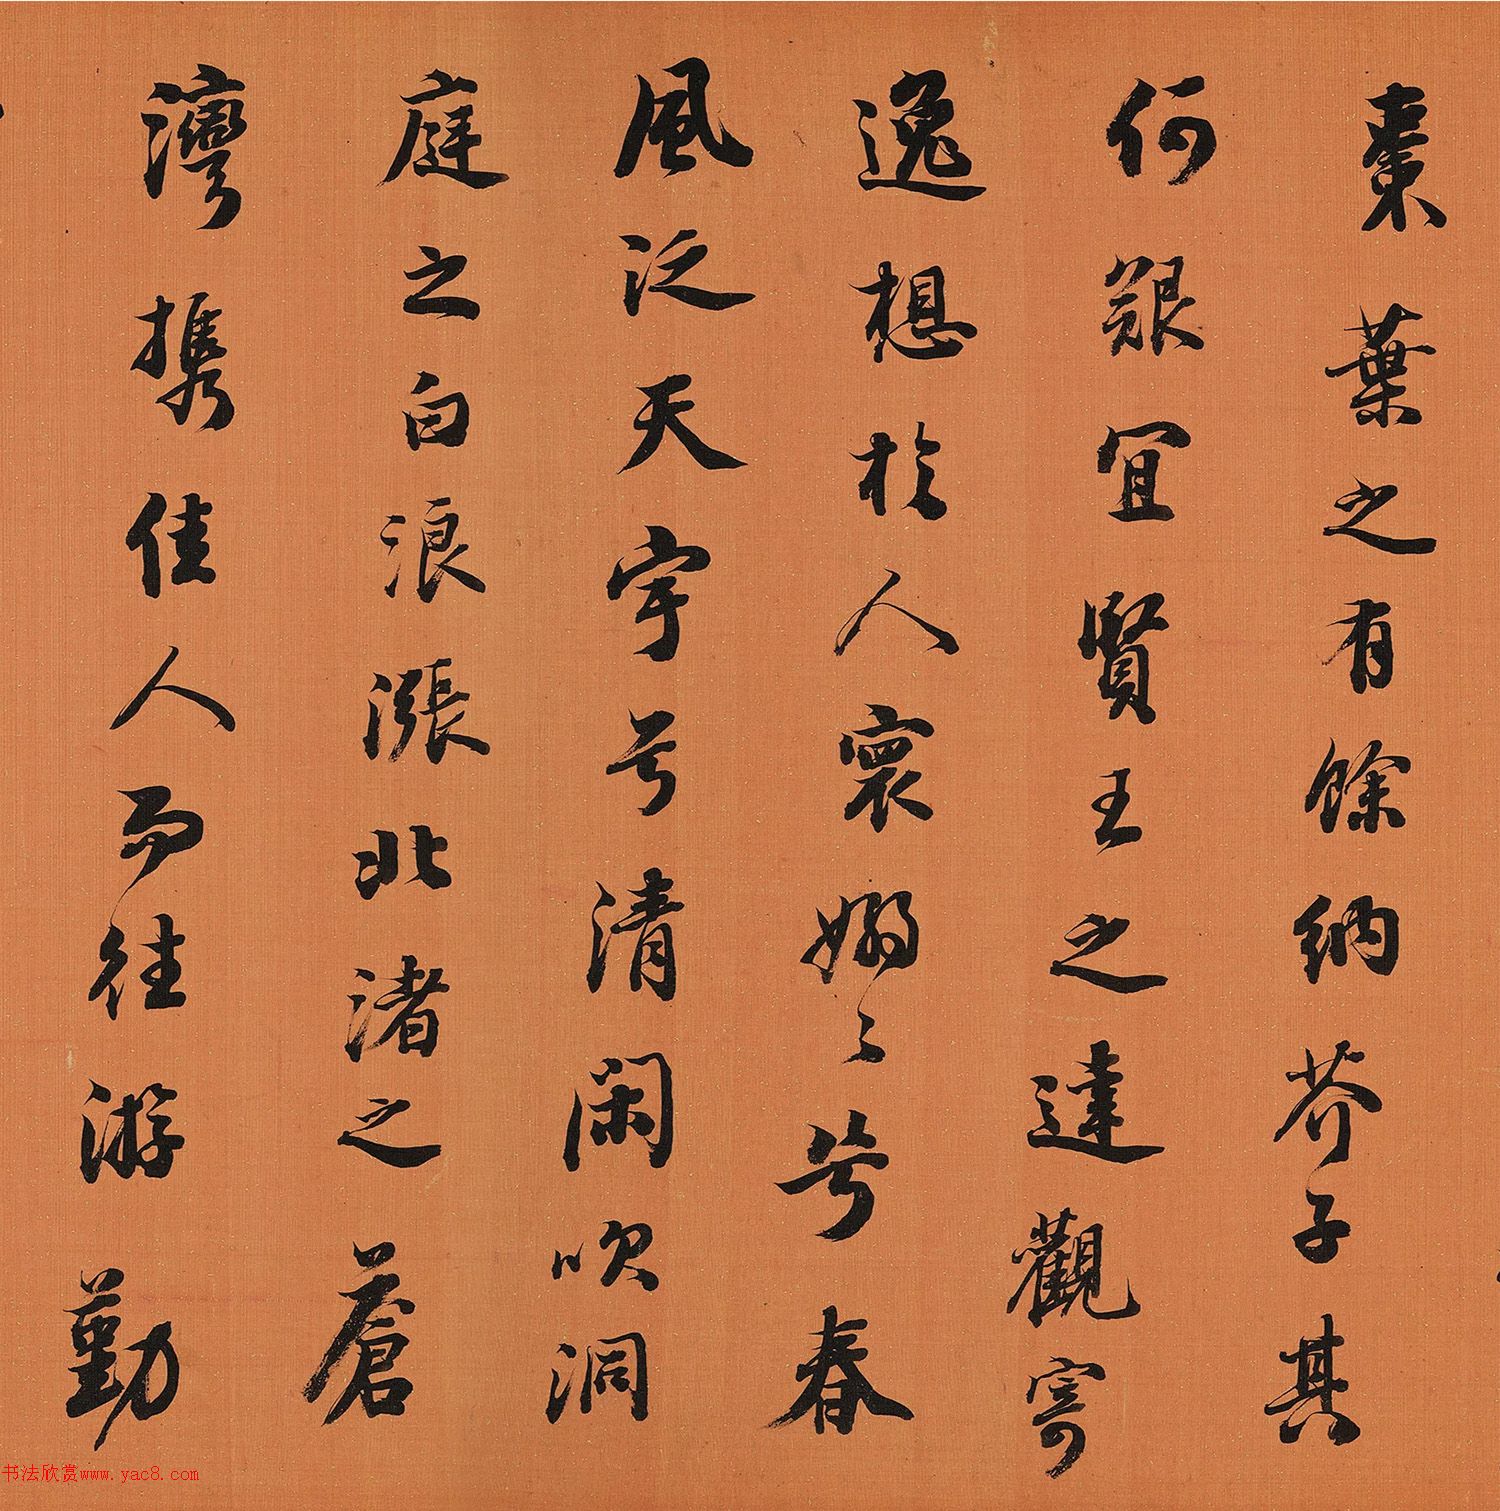 棗葉之有餘納芥子其
何艱宜賢王之達觀寄
逸想於人寰嫋〻兮春
風泛天宇兮清閑吹洞
庭之白浪漲北渚之蒼
灣攜佳人而往游勤
书法欣赏www.yac8.com